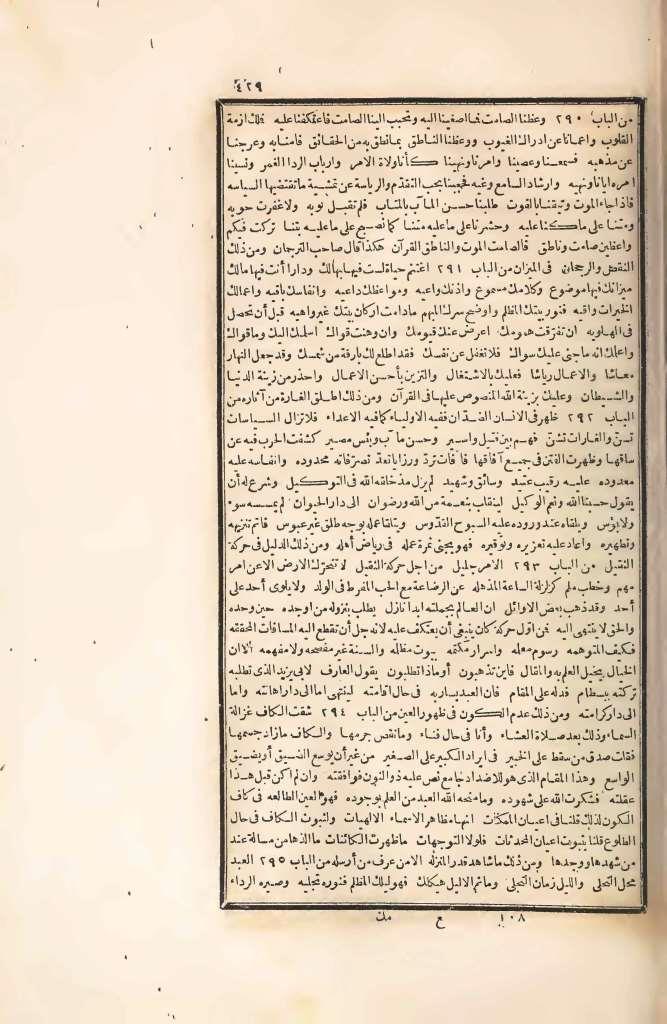 ٤٢٩
من الباب ٢٩٠ وعظنا الصامت فما اصغينا اليه وتحبب الينا الصامت فاعتكفنا عليه فملك ازمة
القلوب واعمانا عن ادراك الغيوب ووعظنا الناطق بما نطق به من الحقائق فامنا به وعرجنا
عن مذهبه فسمعنا وعصينا وامرنا ونهينا كأنا ولاة الامر وارباب الردا الغمر ونسينا
امره ايانا ونهيه وارشاد السامع وغيه فحجبنا بحب التقدم والرياسة عن تمشية ما تقتضيها السياسه
فاذا جاء الموت وتيقنا بالفوت طلبنا حسن المآب بالمتاب فلم تقبل توبه ولا غفرت حوبه
ومتنا على ما كنا عليه وحشرنا على ما عليه متنا كما نصبح على ما عليه بتنا تركت فيكم
واعظين صامت وناطق فالصامت الموت والناطق القرآن هكذا قال صاحب الترجمان ومن ذلك
النقص والرجحان فى الميزان من الباب ٢٩١ اغتنم حياة لست فيها بهالك ودارا أنت فيها مالك
ميزانك فيها موضوع وكلامك مسموع واذنك واعيه ومواعظك داعيه وانفاسك باقيه واعمالك
الخيرات واقيه فنور بيتك المظلم واوضح سرك المبهم مادامت اركان بيتك غير واهيه قبل أن تحصل
فى الهاويه ان تفرقت همومك اعرض عنك قيومك وان وهنت قواك اسلمك اليك وما قواك
واعلمك انه ما جنى عليك سواك فلا تغفل عن نفسك فقد اطلع لك بارقة من شمسك وقد جعل النهار
معاشا والاعمال رياشا فعليك بالاشتغال والتزين بأحسن الاعمال واحذر من زينة الدنيا
والشيطان وعليك بزينة الله المنصوص عليها فى القرآن ومن ذلك اطلق الغارة من آثاره من
الباب ٢٩٢ ظهر فى الانسان الضدان ففيه الاولياء كما فيه الاعداء فلا تزال السياسات
تسن والغارات تشن فهم بين قتيل واسير وحسن مآب وبئس مصير كشفت الحرب فيه عن
ساقها وظهرت الفتن فى جميع آفاقها فآفات ترد ورزايا تعد تصرفاته محدوده وانفاسه عليه
معدوده عليه رقيب عتيد وسائق وشهيد لم يزل مذ خلقه الله فى التوكيل وشرع له أن
يقول حسبنا الله ونعم الوكيل لينقلب بنعمة من الله ورضوان الى دار الحيوان لم يمسسه سوء
ولا بؤس ويلقاه عند وروده عليه السبوح القدوس ويتلقاه عمله بوجه طلق غير عبوس فاتم تنزيهه
وتطهيره واعاد عليه تعزيره وتوقيره فهو يجنى ثمرة عمله فى رياض أمله ومن ذلك الدليل فى حركة
الثقيل من الباب ٢٩٣ الامر جليل من اجل حركة الثقيل لا تتحرك الارض الا عن امر
مهم وخطب ملم كزلزلة الساعة المذهله عن الرضاعة مع الحب المفرط فى الولد ولا يلوى أحد على
أحد وقد ذهب بعض الاوائل ان العالم بجملته ابدا نازل يطلب بنزوله من اوجده حين وحده
والحق لا ينتهى اليه فمن اول حركة كان ينبغى أن يعتكف عليه لانه جل أن تقطع اليه المسافات المحققه
فكيف المتوهمه رسوم معلمه واسرار مكتمه بيوت مظلمه والسنة غير مفصحه ولا مفهمه الا ان
الخيال يخيل العلم به والمقال فاين تذهبون أو ماذا تطلبون يقول العارف لابى يزيد الذى تطلبه
تركته ببسطام فدله على المقام فان العبد يسار به فى حال اقامته لينتهى اما الى دار اهانته واما
الى دار كرامته ومن ذلك عدم الكون فى ظهور العين من الباب ٢٩٤ شقت الكاف غزالة
السماء وذلك بعد صلاة العشاء وأنا فى حال فناء وما نقص جرمها والكاف ما زاد جسمها
فقلت صدق من سقط على الخبير فى ايراد الكبير على الصغير من غير أن يوسع الضيق أو يضيق
الواسع وهذا المقام الذى هو للاضداد جامع نص عليه ذو النون فوافقته وان لم اكن قبل هذا
عقلته فشكرت الله على شهوده وما منحه الله العبد من العلم بوجوده فهو العين الطالعه فى كاف
الكون لذلك قلنا فى اعيان الممكنات انتها مظاهر الاسماء الالهيات ولثبوت الكاف فى حال
الطلوع قلنا بثبوت اعيان المحدثات فلولا التوجهات ما ظهرت الكائنات ما الذها من مسألة عند
من شهدها ووجدها ومن ذلك ما شاهد قدر المنزله الا من عرف من أرسله من الباب ٢٩٥ العبد
محل التجلى والليل زمان التجلى وما ثم الا ليل هيكلك فهو ليلك المظلم فنوره تجليه وصيره الرداء
١٠٨ ع مك